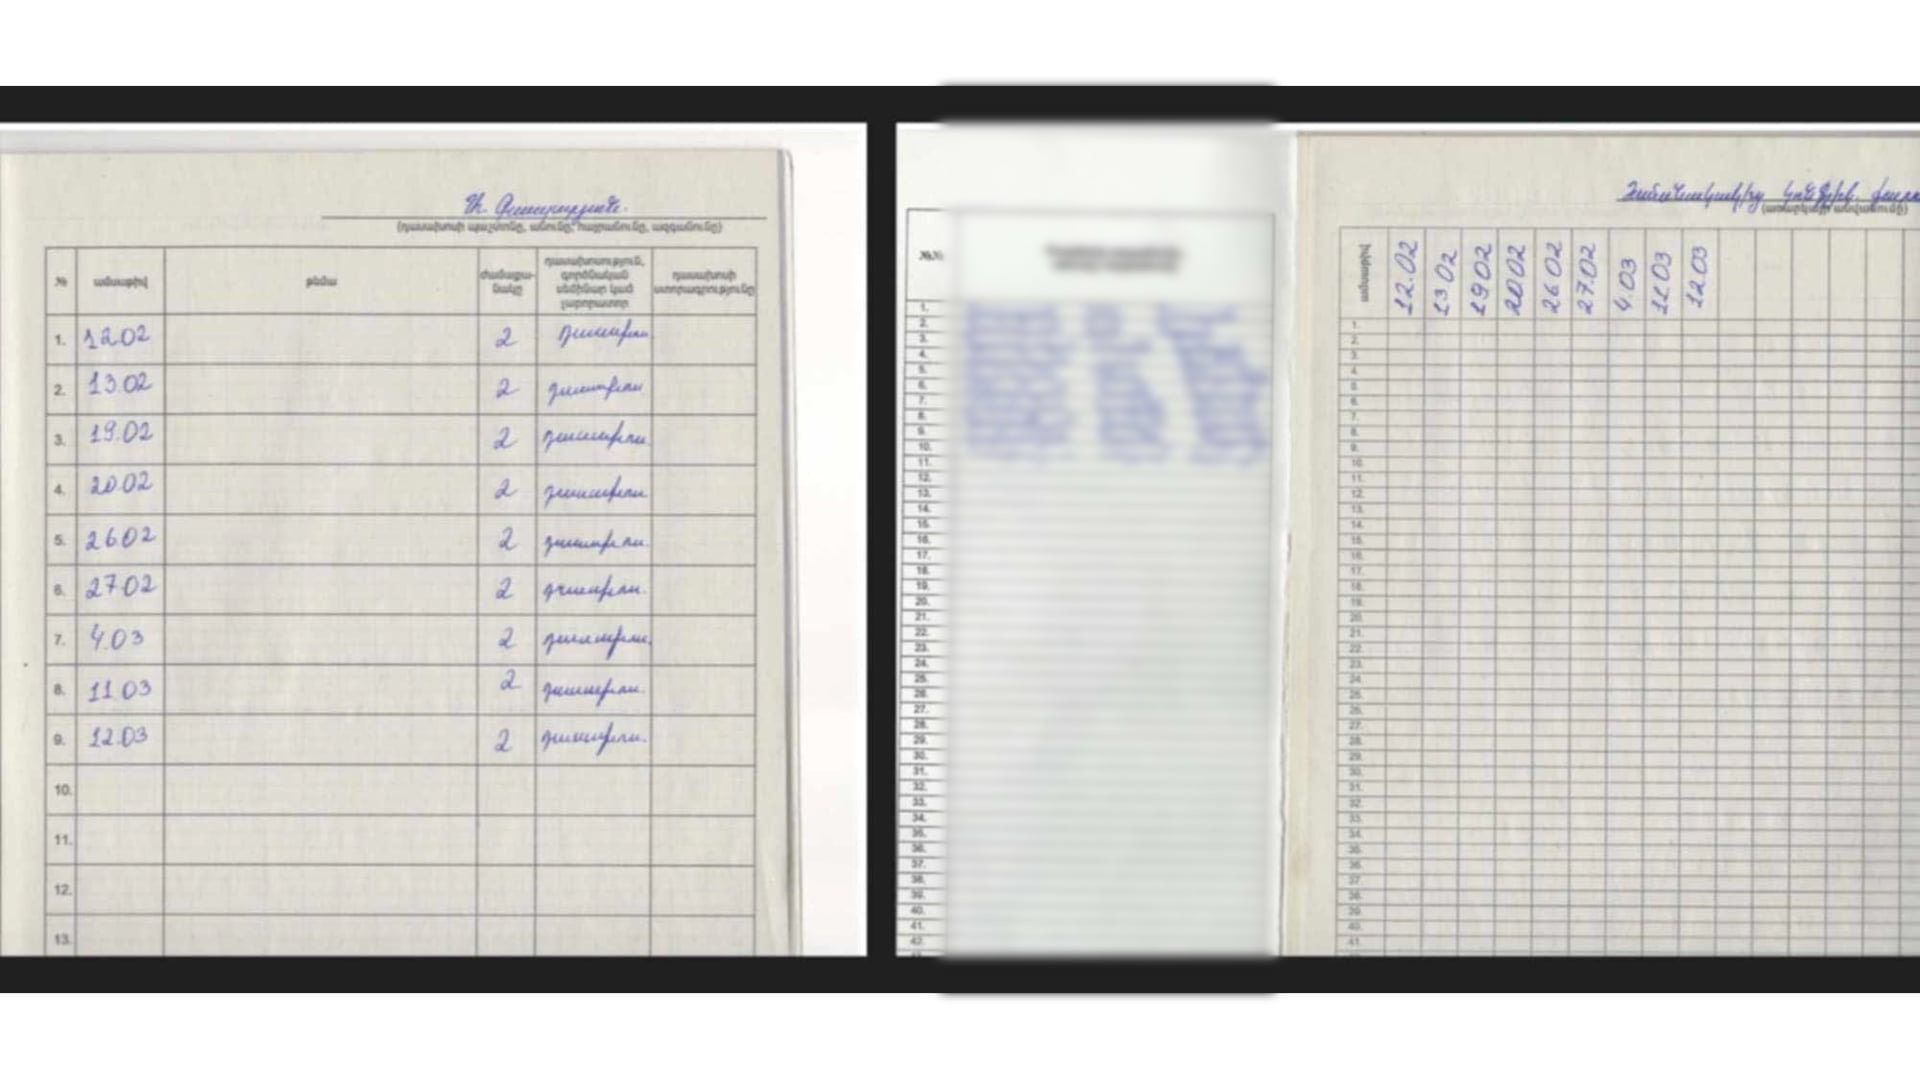 (դասախոսի պաշտոնը, անունը, հայրանունը, ազգանունը)
№ ամսաթիվ թեմա ժամաքա- դասախոսություն, դասախոսի
նակը գործնական ստորագրությունը
սեմինար կամ
լաբորատոր
1. 12.02 2 դասախոս.
2. 13.02 2 դասախոս.
3. 19.02 2 դասախոս.
4. 20.02 2 դասախոս.
5. 26.02 2 դասախոս.
6. 27.02 2 դասախոս.
7. 4.03 2 դասախոս.
8. 11.03 2 դասախոս.
9. 12.03 2 դասախոս.
10.
11.
12.
13.
№№
1.
2.
3.
4.
5.
6.
7.
8.
9.
10.
11.
12.
13.
14.
15.
16.
17.
18.
19.
20.
21.
22.
23.
24.
25.
26.
27.
28.
29.
30.
31.
32.
33.
34.
35.
36.
37.
38.
39.
40.
41.
42.
Ժամանակակից
(առարկայի անվանումը)
12.02 13.02 19.02 20.02 26.02 27.02 4.03 11.03 12.03
1.
2.
3.
4.
5.
6.
7.
8.
9.
10.
11.
12.
13.
14.
15.
16.
17.
18.
19.
20.
21.
22.
23.
24.
25.
26.
27.
28.
29.
30.
31.
32.
33.
34.
35.
36.
37.
38.
39.
40.
41.